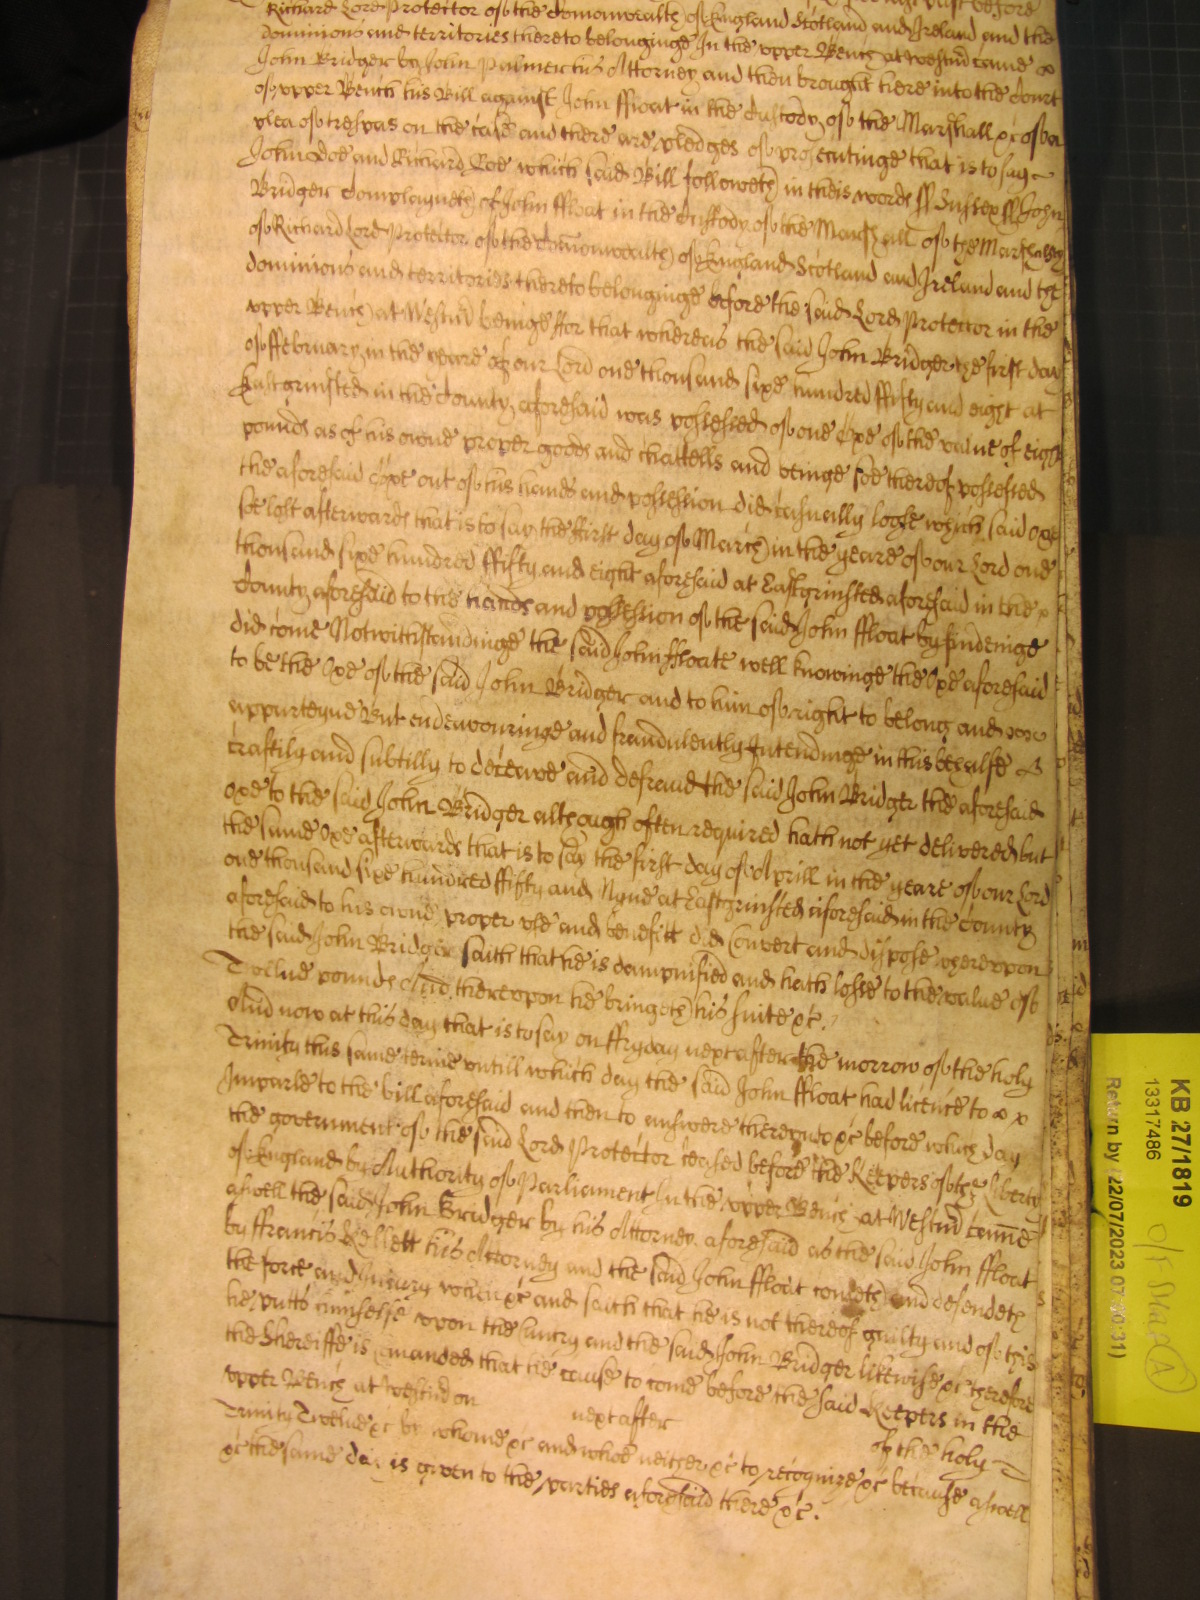 Richard Lord Protector of the Comonwealth of England Scotland and Ireland and the
dominions and territories thereto belonginge In the upper Bench at Westm̃ came
John Bridger by John Palmer his Attorney and then brought here into the Court
of upper Bench his Bill against John ffloat in the Custody of the Marshall &c of a
plea of trespas on the case and there are pledges of prosecutinge that is to say
John Doe and Richard Roe which said Bill followeth in theis words ss Sussex ss John
Bridger Complayneth of John ffloat in the Custody of the Marshall of the Marshalsey
of Richard Lord Protector of the Comonwealth of England Scotland and Ireland and the
dominions and territories thereto belonginge before the said Lord Protector in the
upper Bench at Westm̃ beinge ffor that whereas the said John Bridger the first day
of ffebruary in the yeare of our Lord one thousand sixe hundred ffifty and eight at
Eastgrinsted in the County aforesaid was possessed of one Oxe of the value of eight
pounds as of his owne proper goods and chattells and beinge soe thereof possessed
the aforesaid Oxe out of his hands and possession did casually loose which said Oxe
soe lost afterwards that is to say the ffirst day of March in the yeare of our Lord one
thousand sixe hundred ffifty and eight aforesaid at Eastgrinsted aforesaid in the
County aforesaid to the hands and possession of the said John ffloat by findeinge
did come Notwithstandinge the said John ffloate well knowinge the Oxe aforesaid
to be the Oxe of the said John Bridger and to him of right to belong and
appurteyne But endeavouringe and fraudulently Intendinge in this behalfe
craftily and subtilly to deceave and defraud the said John Bridger the aforesaid
oxe to the said John Bridger although often required hath not yet delivered but
the same Oxe afterwards that is to say the first day of Aprill in the yeare of our Lord
one thousand sixe hundred ffifty and Nyne at Eastgrinsted aforesaid in the County
aforesaid to his owne proper use and benefitt did Convert and dispose whereupon
the said John Bridger saith that he is dampnified and hath losse to the value of
Twelve pounds And thereupon he bringeth his suite &c.
And now at this day that is to say on ffryday next after the morrow of the holy
Trinity this same terme untill which day the said John ffloat had licence to
Imparle to the bill aforesaid and then to answere thereunto &c before which day
the government of the said Lord Protector ceased before the Keepers of the Liberty
of England by Authority of Parliament In the upper Bench at Westm̃ comme
aswell the said John Bridger by his Attorney aforesaid as the said John ffloat
by ffrancis Kellett his Attorney and the said John ffloat cometh and defendeth
the force and Iniury when &c and saith that he is not thereof guilty and of this
he putts himselfe upon the Cuntry and the said John Bridger likewise &c therefore
the Sheriffe is comanded that he cause to come before the said Keepers in the
upper Bench at Westm̃ on next after of the holy
Trinity Twelve &c by whome &c and whoe neither &c to recognize &c because aswell
&c the same day is given to the parties aforesaid there &c.
KB 27/1819
13317486
Return by (22/07/2023 07:30:31)
A